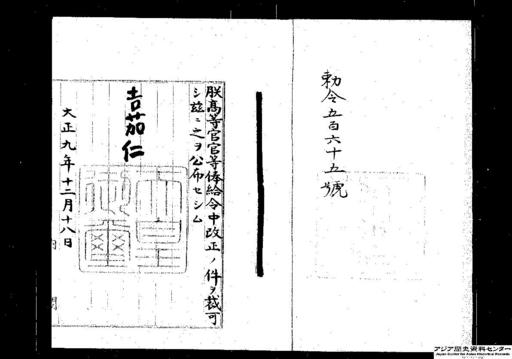 勅令五百六十五號
朕高等官官等俸給令中改正ノ件ヲ裁可
シ茲ニ之ヲ公布セシム
嘉仁
大正九年十二月十八日
内閣
アジア歴史資料センター
Japan Center for Asian Historical Records